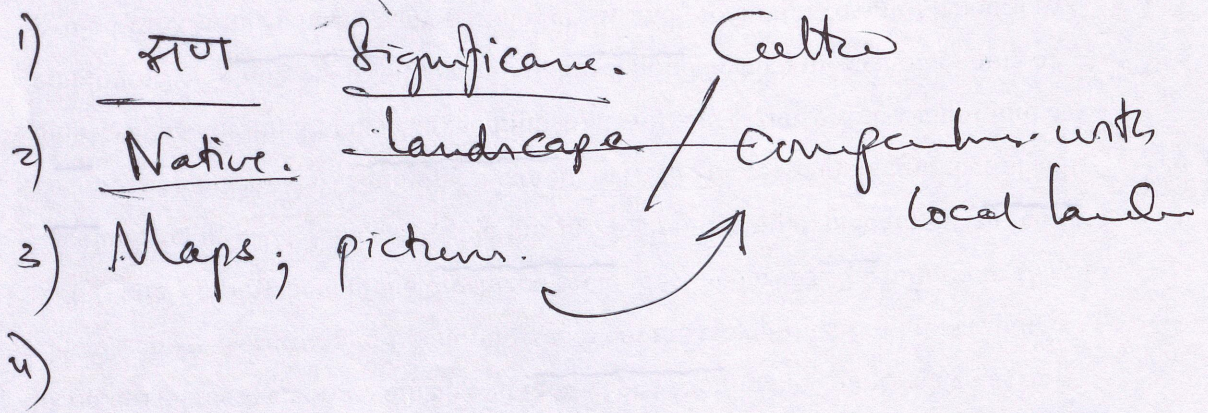 1) सण Significance. Culture
2) Native. landscape / Comparison with
local lands
3) Maps; pictures.
4)